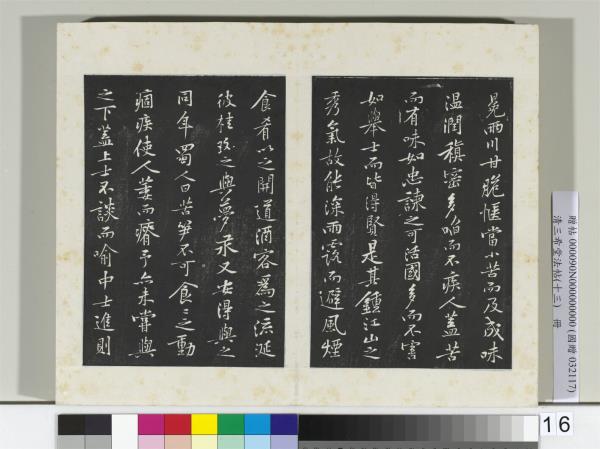 冕兩川甘脆愜當小苦而及成味
溫潤稹密多啗而不疾人蓋苦
而有味如忠諫之可活國多而不害
如舉士而皆得賢是其鍾江山之
秀氣故能深雨露而避風煙
食肴以之開道酒客為之流涎
彼桂玫之與夢汞又安得與之
同年蜀人曰苦笋不可食〻之動
痼疾使人萎而瘠予亦未嘗與
之下蓋上士不談而喻中士進則
贈帖 000090N000000000 (國贈 032117)
清三希堂法帖(十三) 冊
16